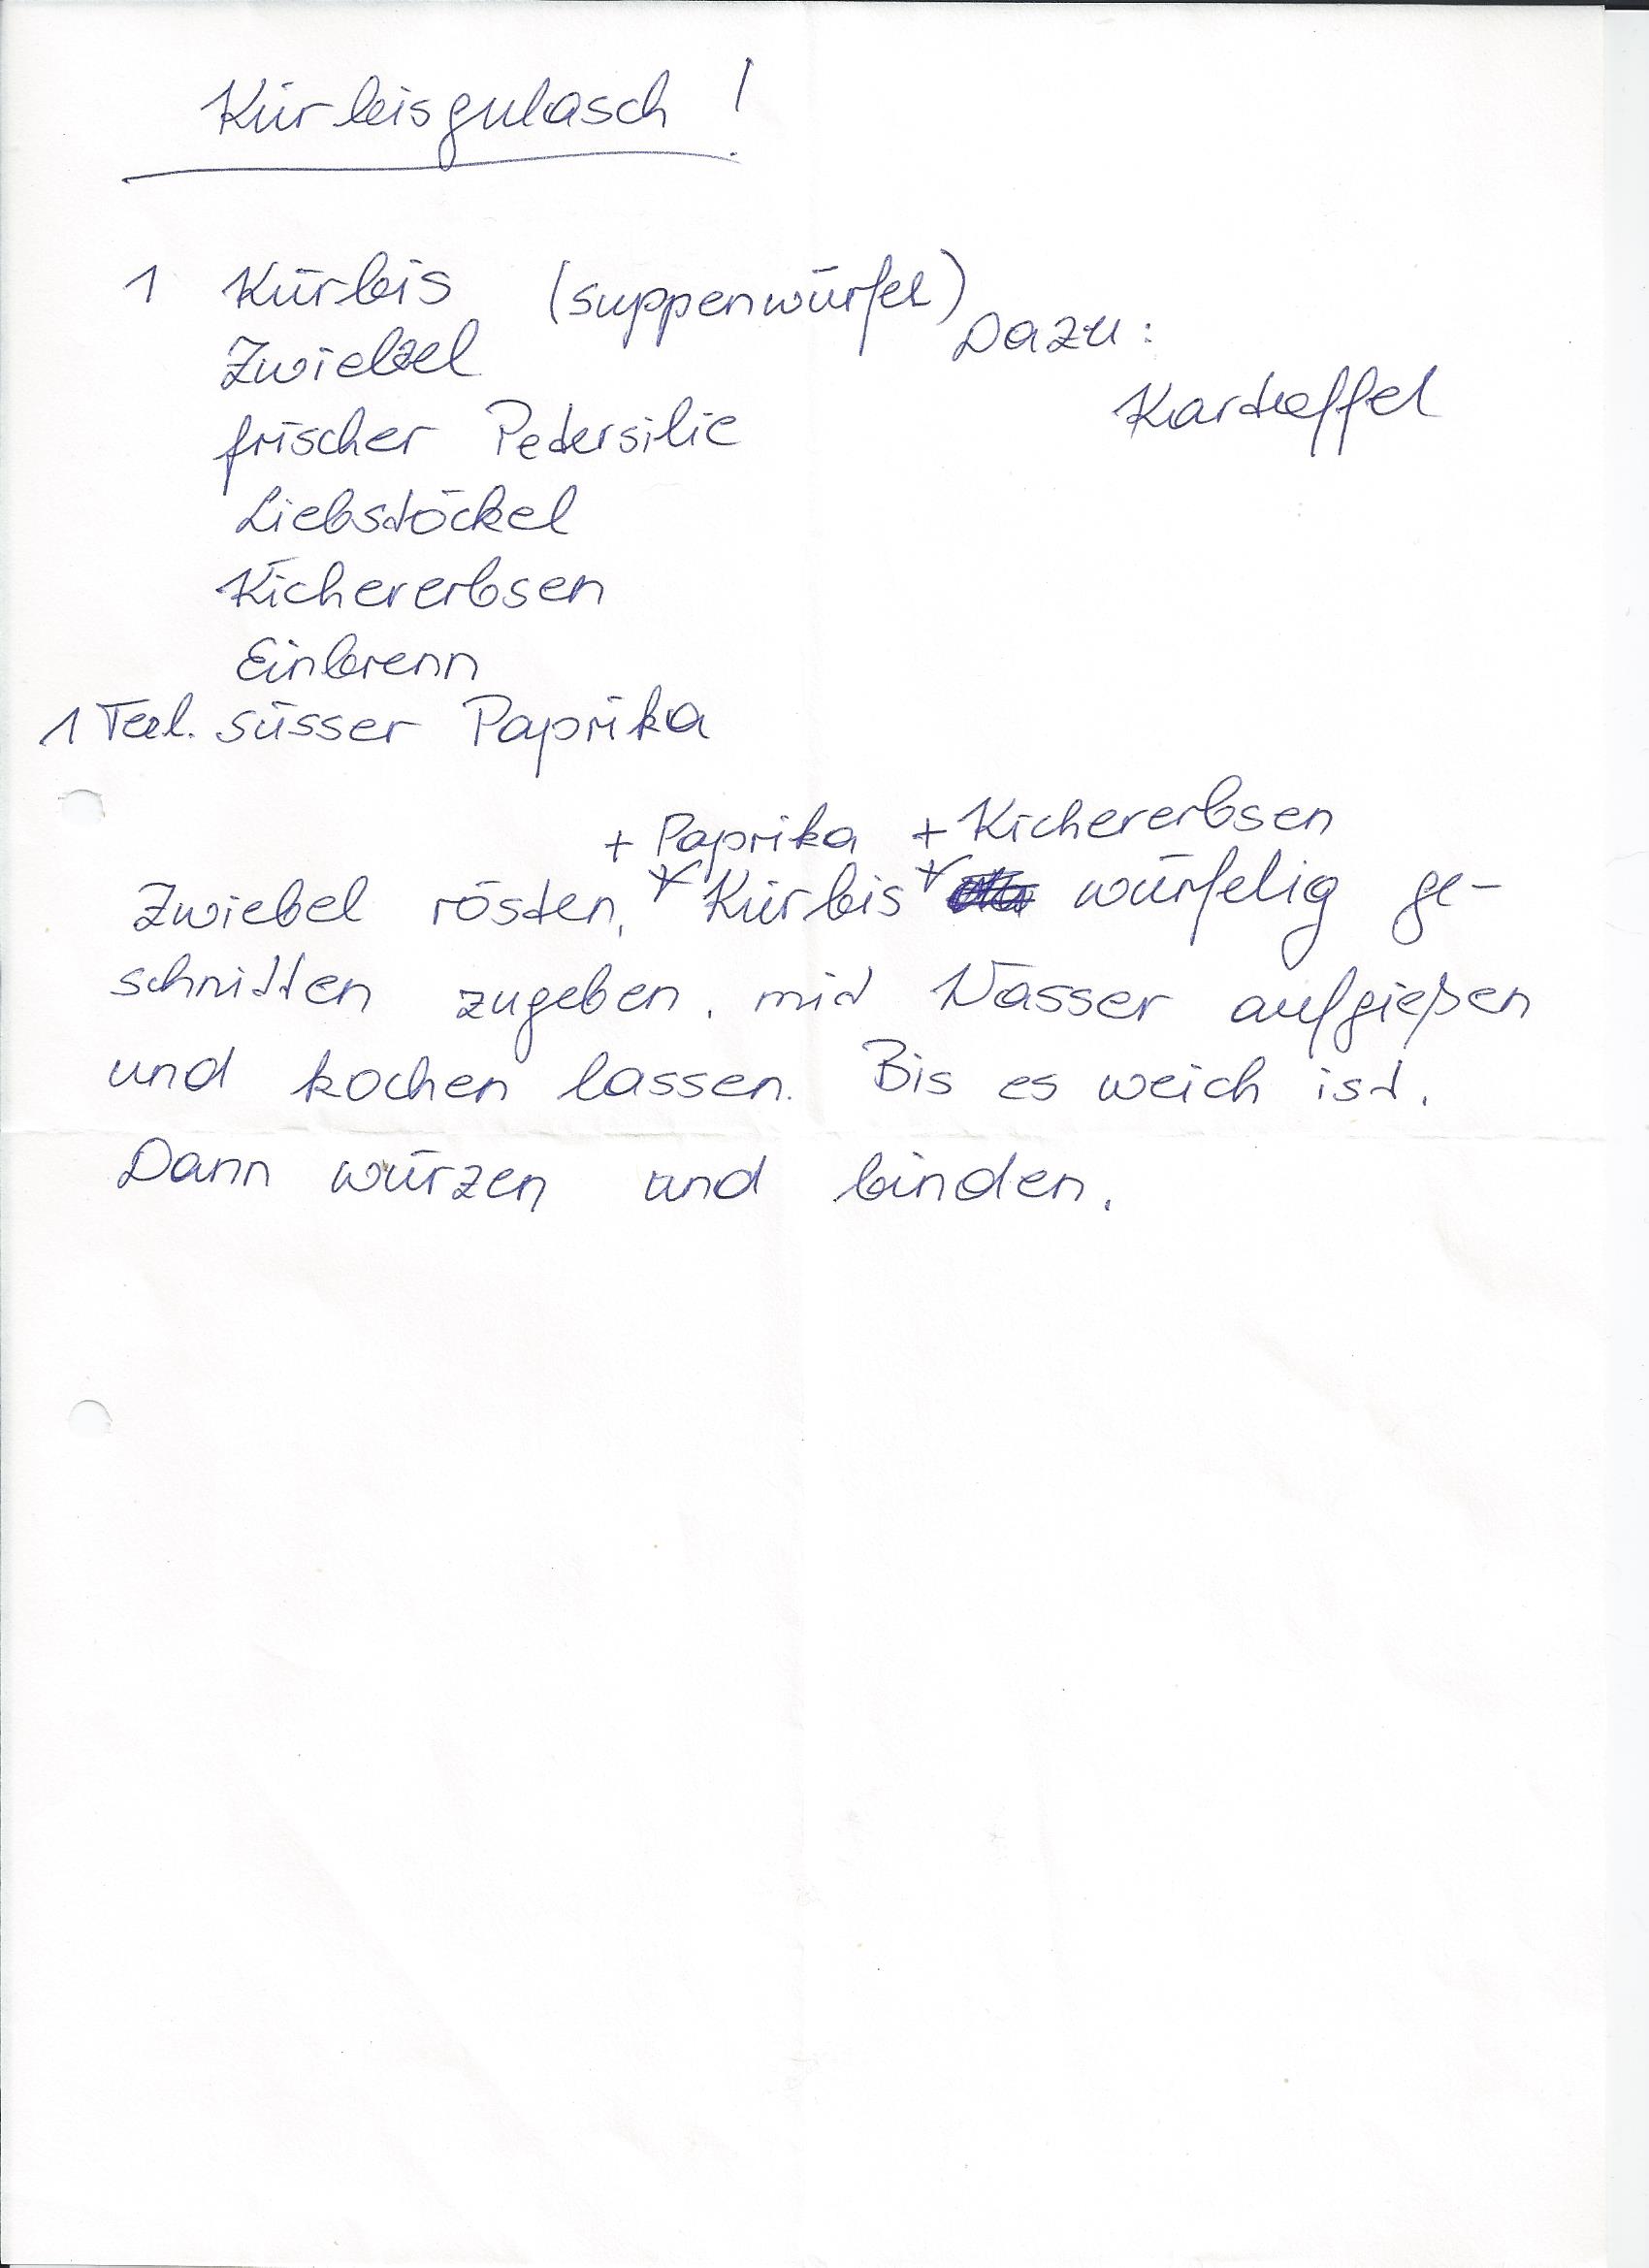 Kürbisgulasch!
1 Kürbis (suppenwürfel)
Dazu:
Zwiebel
Kartoffel
frischer Petersilie
Liebstöckel
Kichererbsen
Einbrenn
1 Teel. süsser Paprika
+ Paprika + Kichererbsen
Zwiebel rösten, Kürbis würfelig ge-
schnitten zugeben. mit Wasser aufgießen
und kochen lassen. Bis es weich ist.
Dann würzen und binden.